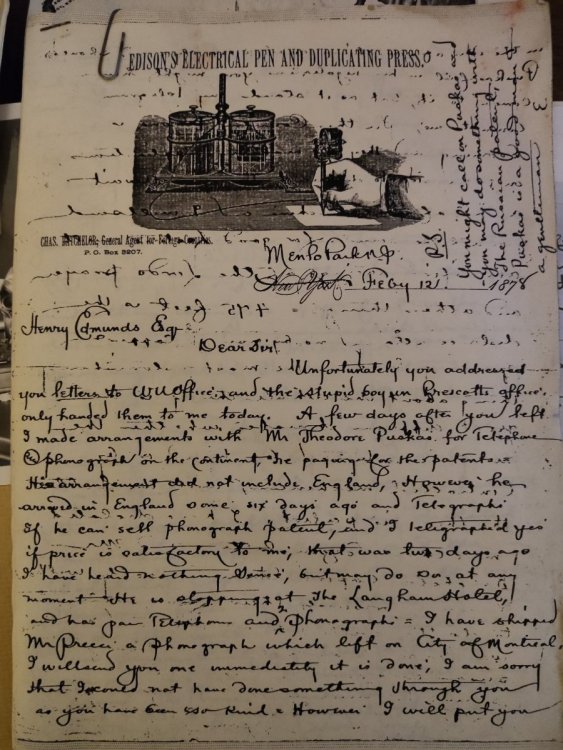 EDISON'S ELECTRICAL PEN AND DUPLICATING PRESS.
CHAS. BATCHELOR, General Agent for Foreign Countries.
P. O. Box 3207.
Menlo Park N.J.
New York Feby 12 1878
Henry Edmunds Esq
Dear Sir
Unfortunately you addressed
you letters to WU Office, and the stupid boy in Prescotts office
only handed them to me today. A few days after you left
I made arrangements with Mr Theodore Puskas for Telephone
& phonograph on the continent, he paying for the patents
His arrangement did not include England, However he
arrived in England some six days ago and Telegraphs
if he can sell phonograph patent, and I telegraphed yes
if price is satisfactory to me, that was two days ago
I have heard nothing since, but may do so at any
moment He is stopping at The Langham Hotel,
and has pair Telephones and 2 phonographs = I have shipped
Mr Preece a phonograph which left on City of Montreal.
I will send you one immediately it is done, I am sorry
that I could not have done something through you
as you have been so kind = However I will put you
P.S.
You might call on Puskas and
you may do something with
the Russian patent,
Puskas is a good man &
a gentleman E